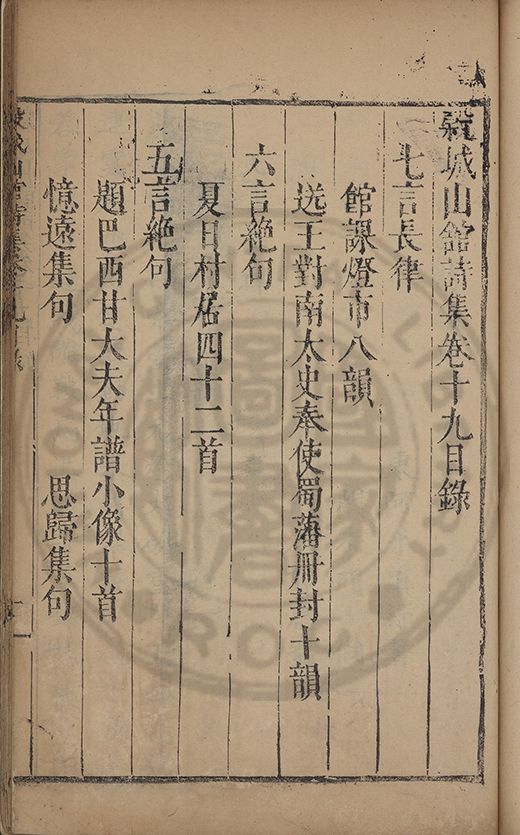 穀城山館詩集卷十九目錄
七言長律
館課燈市八韻
送王對南太史奉使蜀藩冊封十韻
六言絶句
夏日村居四十二首
五言絶句
題巴西甘大夫年譜小像十首
憶遠集句 思歸集句
城山館詩集卷十九目錄 一